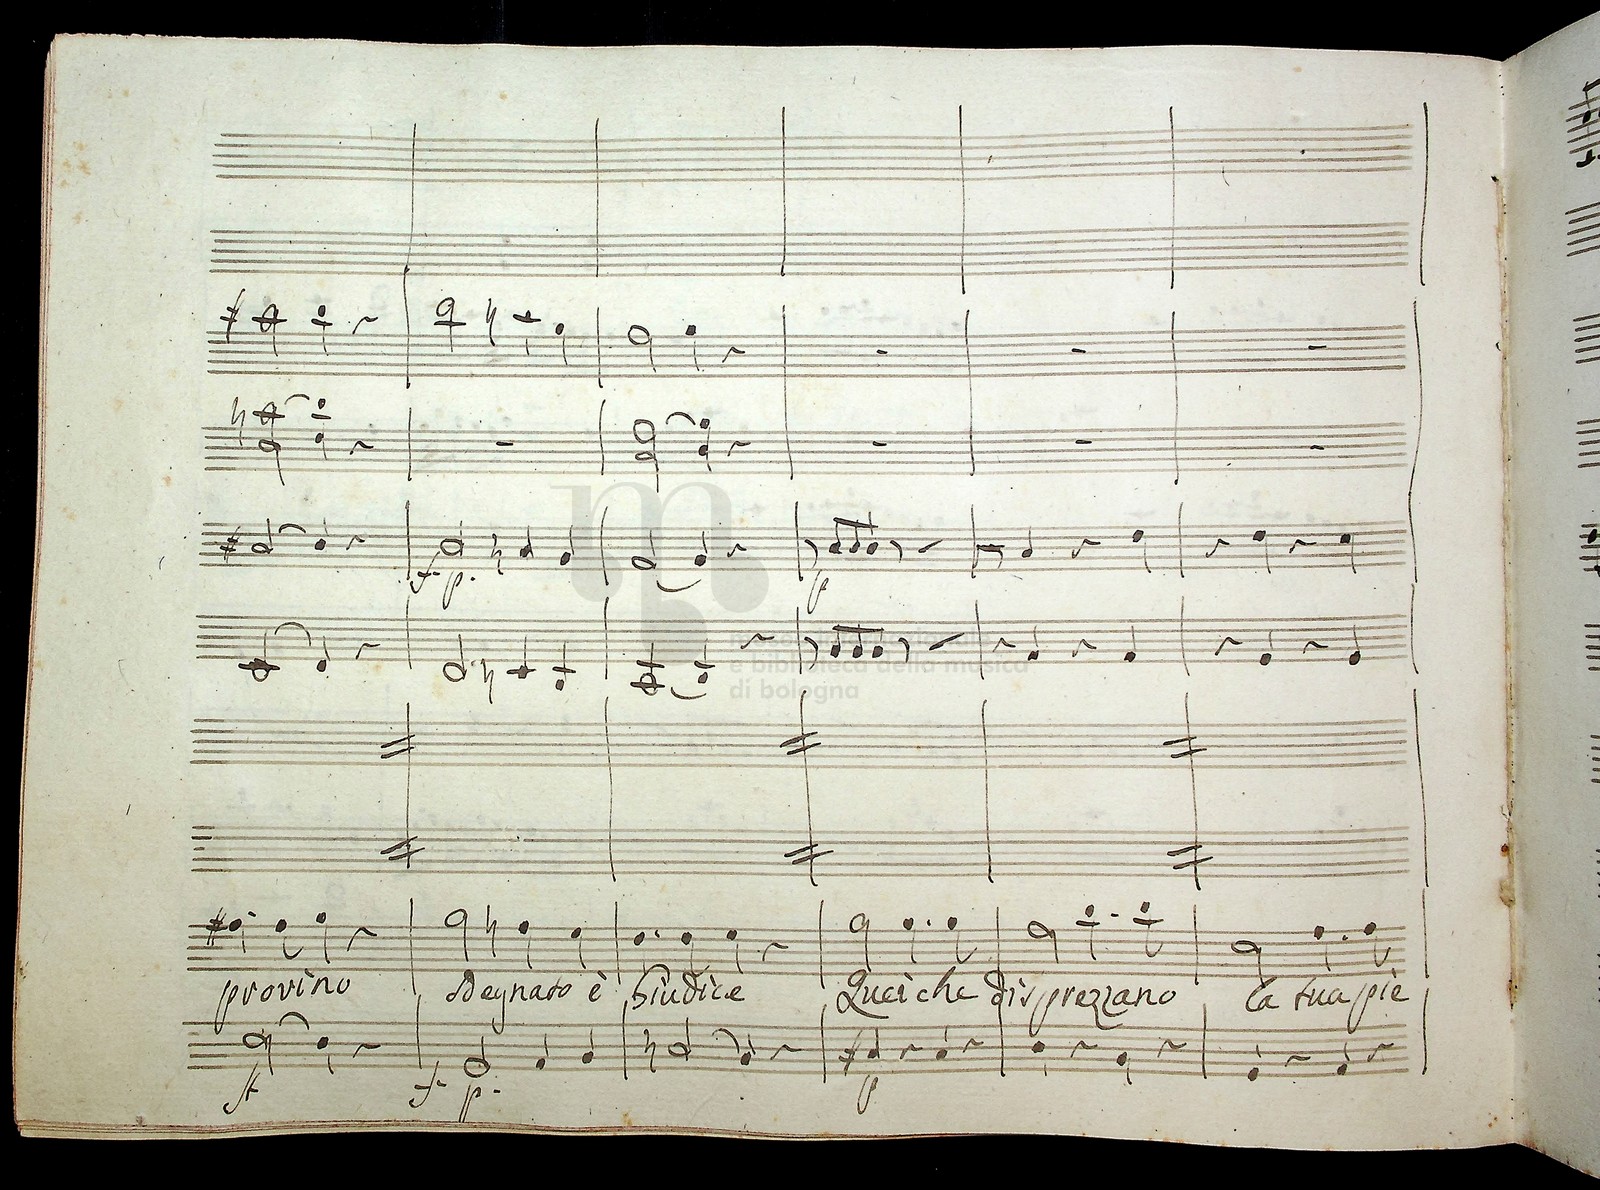 f p. p
museo internazionale
e biblioteca della musica
di bologna
provino sdegnato è Giudice Quei che disprezzano la tua piè
f f p. p